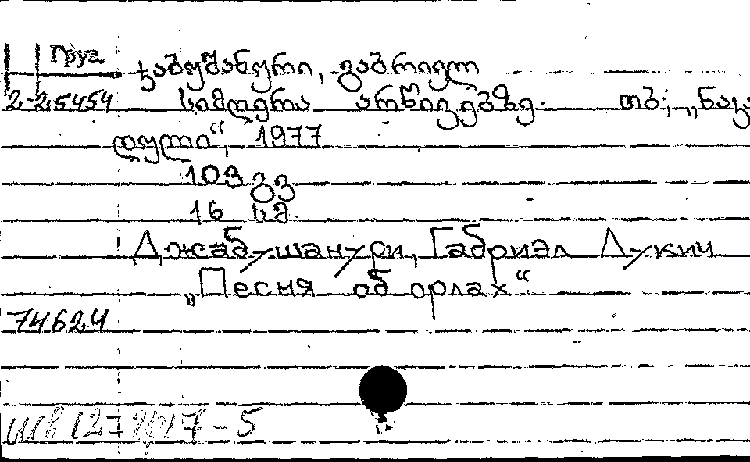 Груз
ჯაბუშანური, გაბრიელ
2-25454 სიმღერა არწივებზე. თბ., „ნაკა
დული“, 1977
103 გვ
16 სმ.
Джабушанури, Габриэл Лукич
„Песня об орлах“
74624